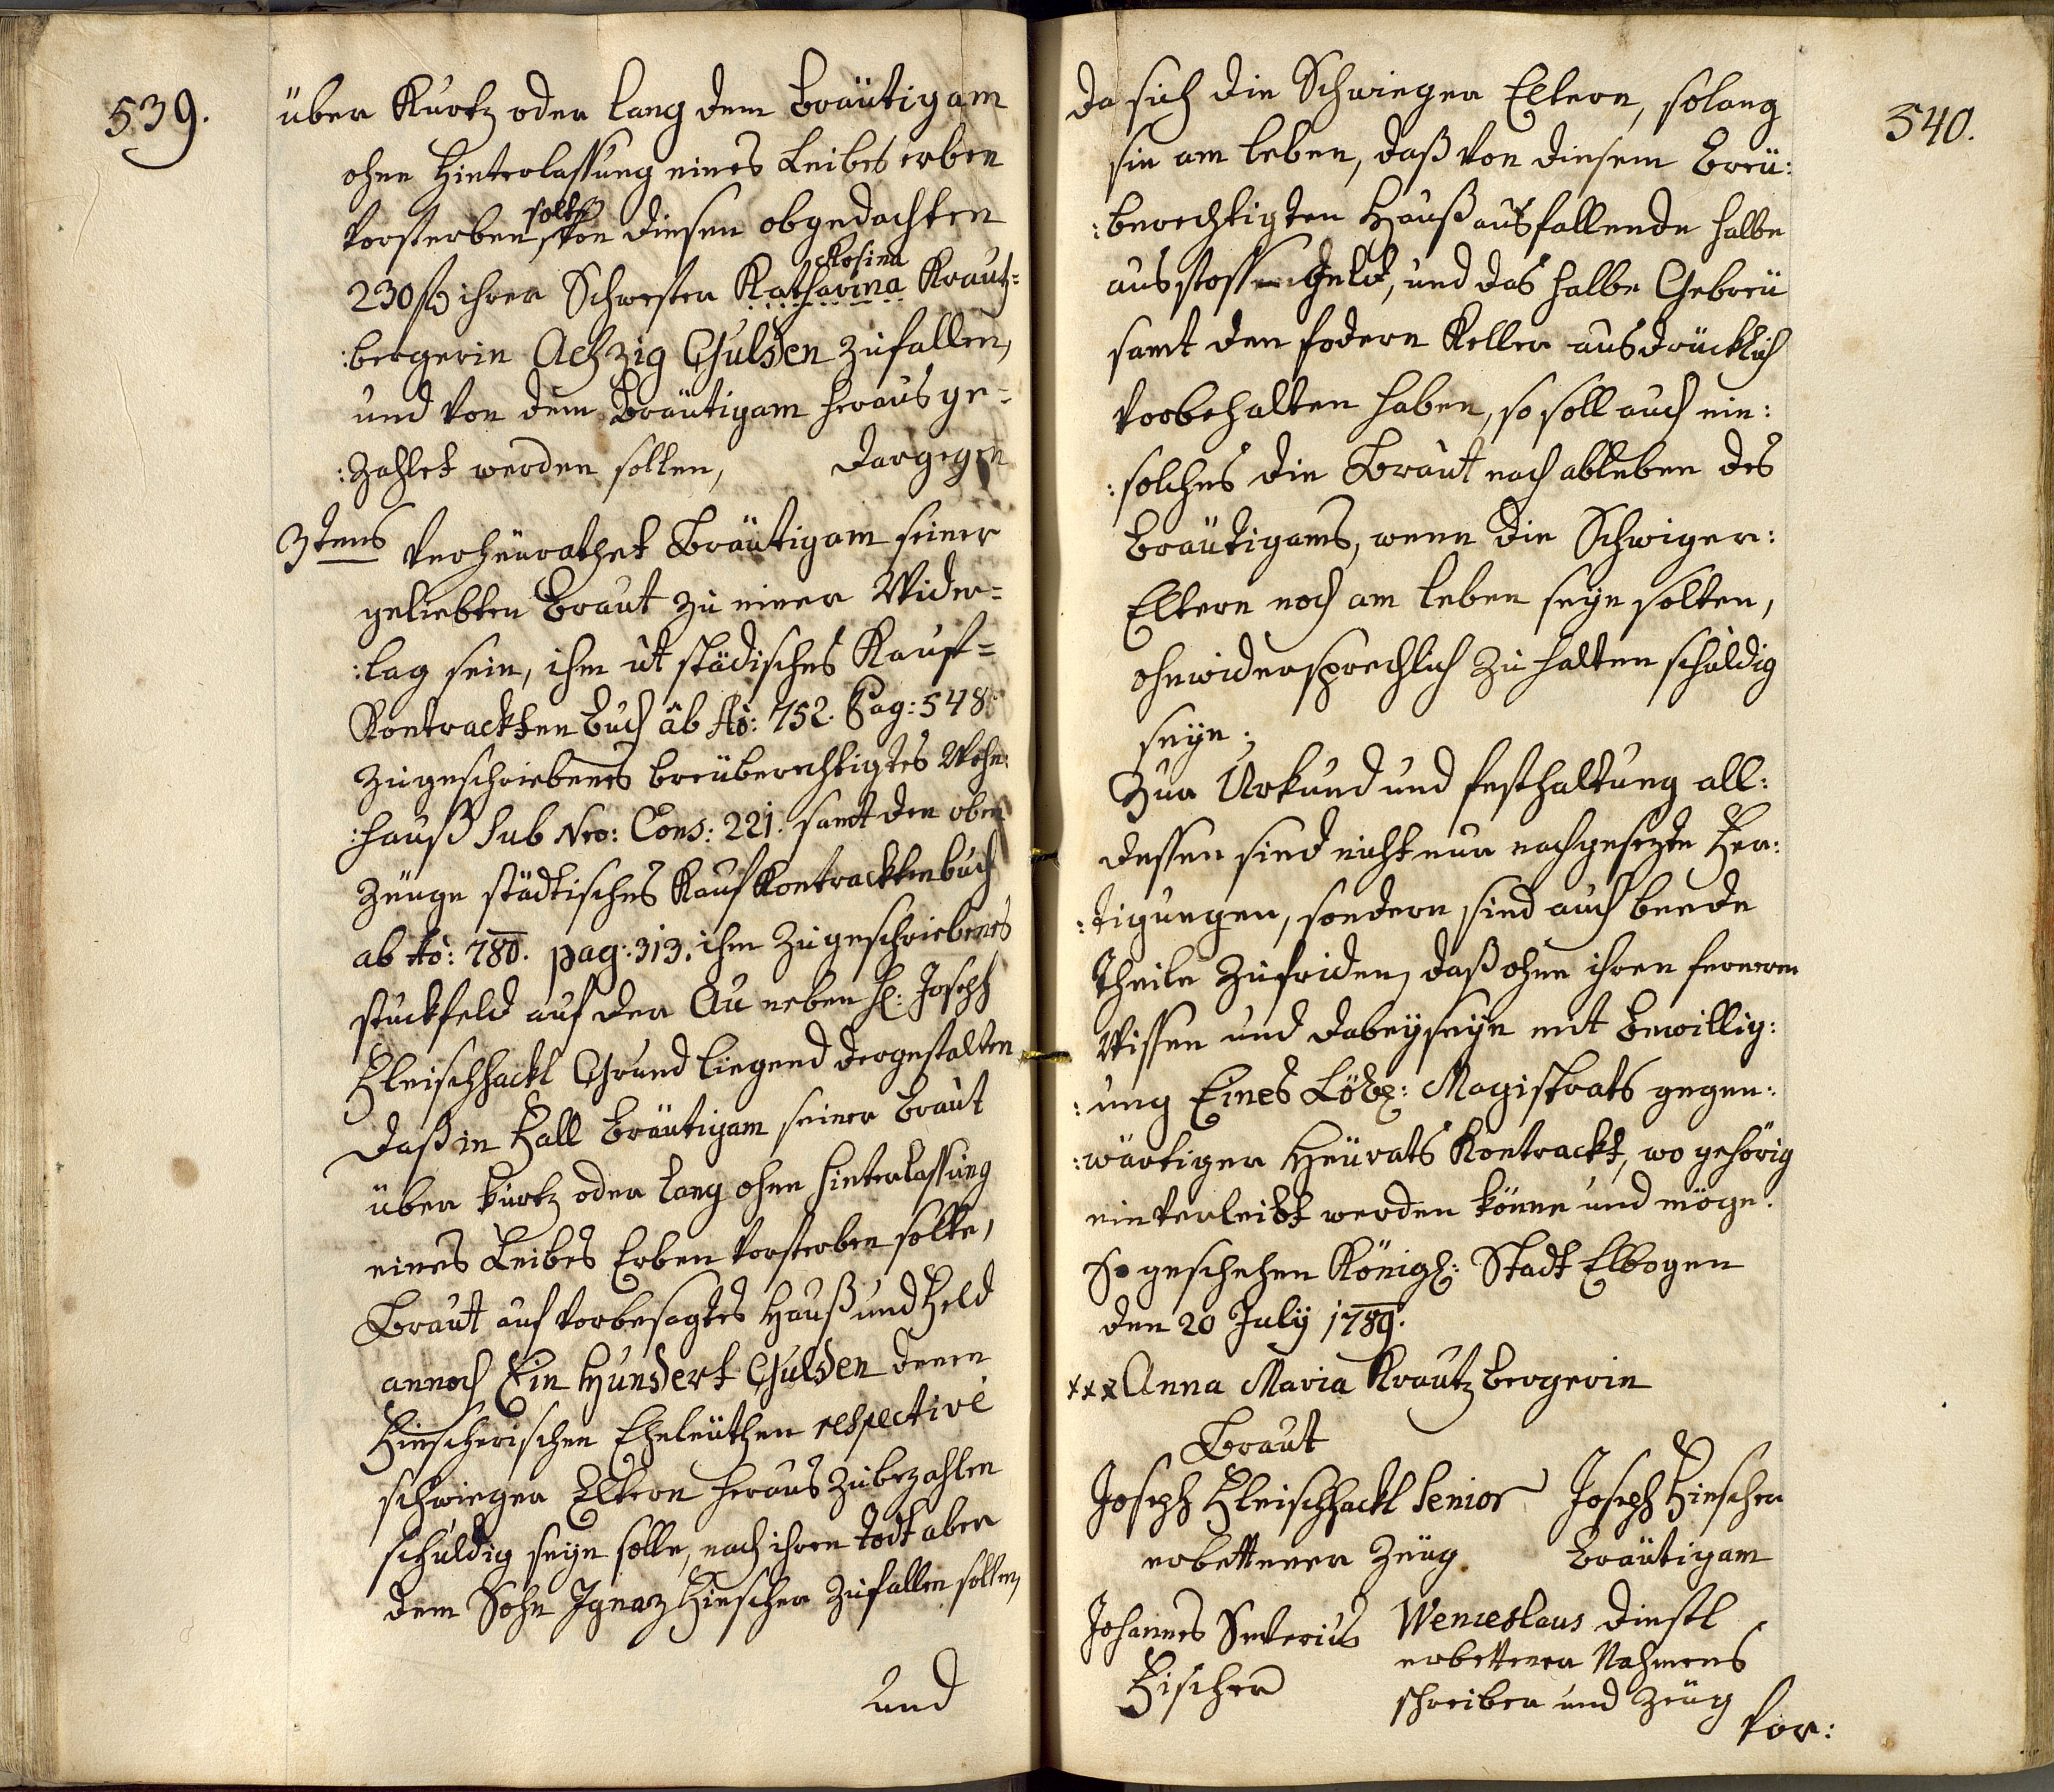 539.
über Kurtz oder lang dem Bräutigam
ohne Hinterlassung eines Leibes erben
solte
versterben, von diesen obgedachten
Rosina
230 f ihrer Schwester Katharina Krautz=
:bergerin Achzig Gulden zufallen,
und von dem Bräutigam heraus ge=
:zahlet werden sollen, Dargegen
3tens verheürathet Bräutigam seiner
geliebten Braut zu einer Wider=
:lag sein, ihm ut städisches Kauf=
Kontrackten Buch ab Ao: 752. Pag: 548.
zugeschriebenes breüberechtigtes Wohn:
:hauß sub Nro: Cons: 221. samt den oben
Zeuge städtisches Kauf Kontracktenbuch
ab Ao: 780. pag: 313. ihm zugeschriebenes
stuckfeld auf der Au neben H: Joseph
Fleischhackl Grund liegend dergestalten
daß in Fall Bräutigam seiner Braut
über kurtz oder lang ohne hinterlassung
eines Leibes Erben versterben solte,
Braut auf vorbesagtes Hauß und Feld
annoch Ein Hundert Gulden denen
Hinscherischen Eheleüthen respective
schwieger Eltern heraus zubezahlen
schuldig seyn solle, nach ihren Todt aber
dem Sohn Ignaz Hinscher zufallen sollen,
und
540.
da sich die Schwieger Eltern, solang
sie am leben, daß von diesem Breü:
:berechtigten Hauß ausfallende halbe
ausstossen Geld, und das halbe Gebreü
samt den fodern Keller ausdrücklich
vorbehalten haben, so soll auch ein:
:solches die Braut nach ableben des
Bräutigams, wenn die Schwiger:
Eltern noch am leben seyn solten,
ohnwidersprechlich zu halten schuldig
seyn;
Zur Urkund und festhaltung all:
dessen sind nicht nur nachgesezte Fer:
:tigungen, sondern sind auch beede
Theile zufriden, daß ohne ihren fernern
Wissen und dabeyseyn mit Bewillig:
:ung Eines Löbl: Magistrats gegen:
:wärtiger Heürats Kontrackt, wo gehörig
einverleibt werden könne und möge.
So geschehen Königl: Stadt Elbogen
den 20 July 1789.
xxx Anna Maria Krautzbergerin
Braut
Joseph Fleischhackl Senior Joseph Hinscher
erbettener Zeüg Bräutigam
Johannes Wenceslaus Dinstl
Fischer erbettener Nahmens
schreiber und Zeüg
Vor: